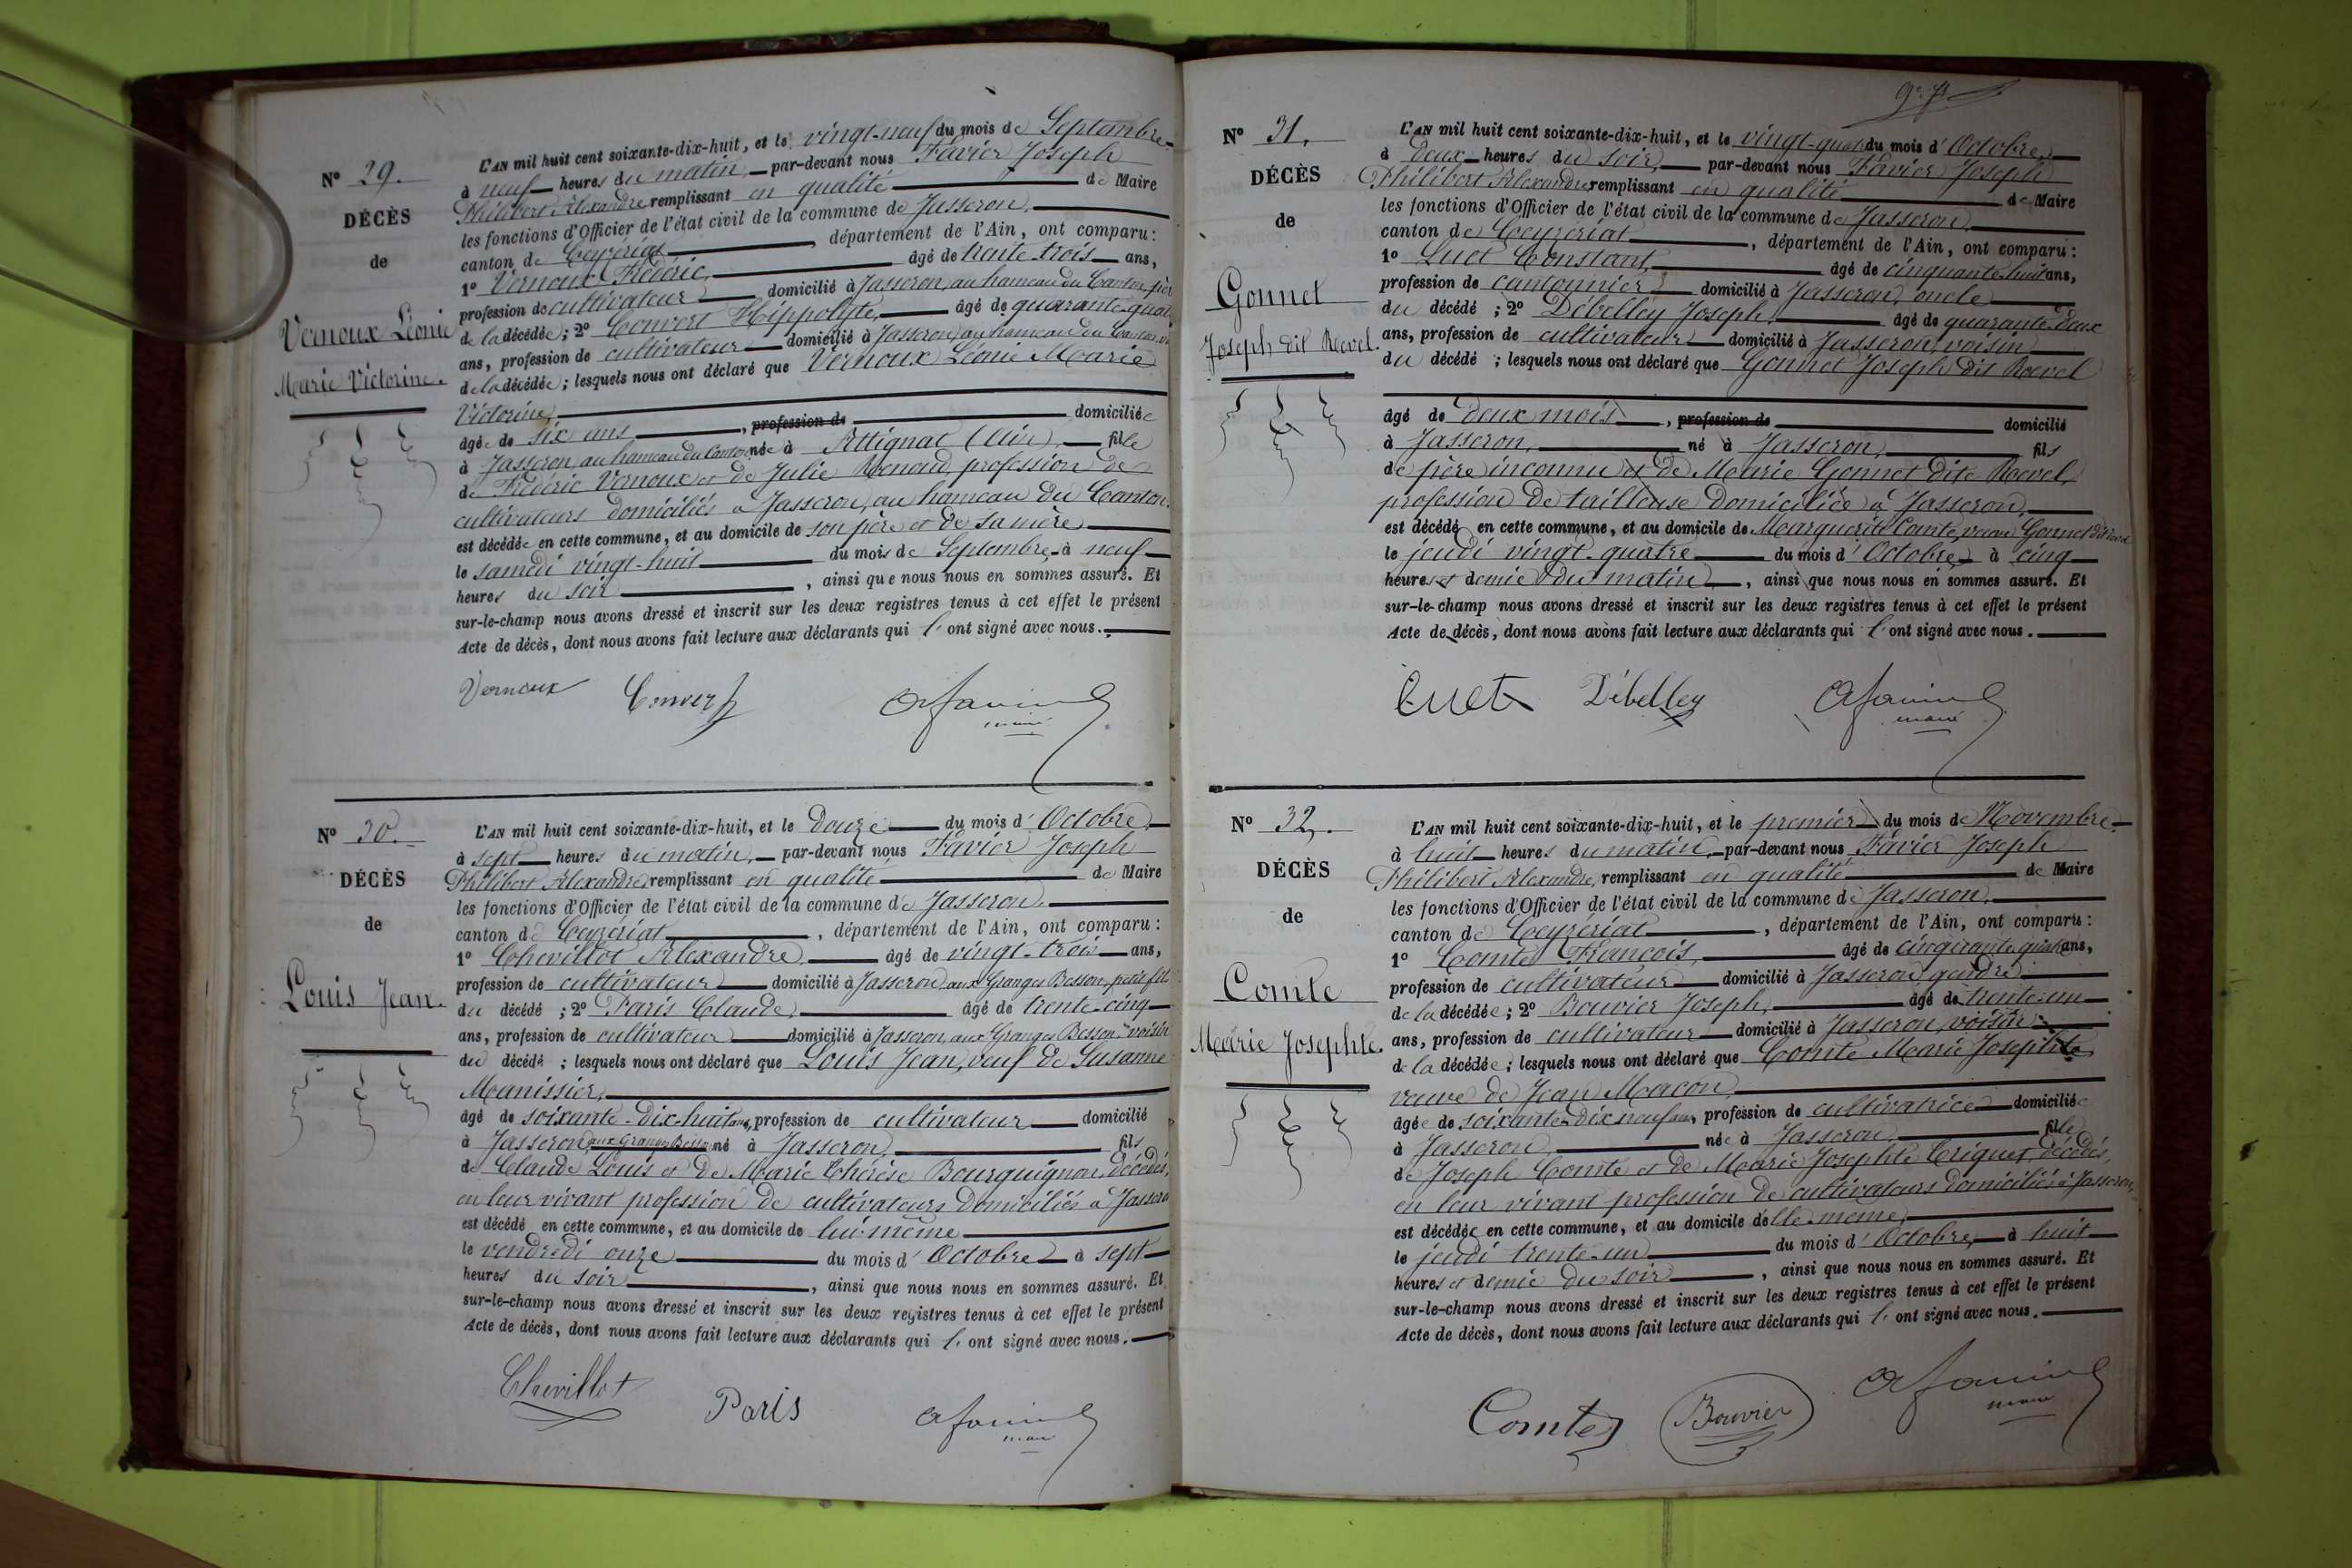 N° 29.
DÉCÈS
de
Vernoux Léonie
Marie Victorine.
L'AN mil huit cent soixante-dix-huit, et le vingt-neuf du mois de Septembre
à neuf heures du matin, par-devant nous Favier Joseph
Philibert Alexandre remplissant en qualité de Maire
les fonctions d'Officier de l'état civil de la commune de Jasseron,
canton de Ceyzériat, département de l'Ain, ont comparu :
1° Vernoux Frédéric, âgé de trente-trois ans,
profession de cultivateur domicilié à Jasseron, au hameau du Canton, père
de la décédée ; 2° Convert Hippolyte, âgé de quarante-quatre
ans, profession de cultivateur domicilié à Jasseron au hameau du Canton,
de la décédée ; lesquels nous ont déclaré que Vernoux Léonie Marie
Victorine,
âgée de six ans, profession de domiciliée
à Jasseron, au hameau du Canton née à Attignat (Ain), fille
de Frédéric Vernoux et de Julie Renoud, profession de
cultivateurs domiciliés à Jasseron, au hameau du Canton.
est décédée en cette commune, et au domicile de son père et de sa mère
le samedi vingt-huit du mois de Septembre, à neuf
heures du soir, ainsi que nous nous en sommes assuré. Et
sur-le-champ nous avons dressé et inscrit sur les deux registres tenus à cet effet le présent
Acte de décès, dont nous avons fait lecture aux déclarants qui l'ont signé avec nous.
Vernoux Convert afavier
maire
N° 30.
DÉCÈS
de
Louis Jean.
L'AN mil huit cent soixante-dix-huit, et le douze du mois d'Octobre
à sept heures du matin, par-devant nous Favier Joseph
Philibert Alexandre remplissant en qualité de Maire
les fonctions d'Officier de l'état civil de la commune de Jasseron,
canton de Ceyzériat, département de l'Ain, ont comparu :
1° Chevillot Alexandre, âgé de vingt-trois ans,
profession de cultivateur domicilié à Jasseron, aux Granges Besson, petit fils
du décédé ; 2° Paris Claude, âgé de trente-cinq
ans, profession de cultivateur domicilié à Jasseron, aux Granges Besson, voisin
du décédé ; lesquels nous ont déclaré que Louis Jean, veuf de Susanne
Manissier,
âgé de soixante-dix-huit ans, profession de cultivateur domicilié
à Jasseron, aux Granges Besson né à Jasseron, fils
de Claude Louis et de Marie Thérèse Bourguignon, décédés,
en leur vivant profession de cultivateurs domiciliés à Jasseron
est décédé en cette commune, et au domicile de lui-même
le vendredi onze du mois d'Octobre à sept
heures du soir, ainsi que nous nous en sommes assuré. Et
sur-le-champ nous avons dressé et inscrit sur les deux registres tenus à cet effet le présent
Acte de décès, dont nous avons fait lecture aux déclarants qui l'ont signé avec nous.
Chevillot Paris afavier
maire
N° 31.
DÉCÈS
de
Gonnet
Joseph dit Revel.
L'AN mil huit cent soixante-dix-huit, et le vingt-quatre du mois d'Octobre,
à deux heures du soir, par-devant nous Favier Joseph
Philibert Alexandre remplissant en qualité de Maire
les fonctions d'Officier de l'état civil de la commune de Jasseron,
canton de Ceyzériat, département de l'Ain, ont comparu :
1° Luet Constant, âgé de cinquante-huit ans,
profession de cantonnier domicilié à Jasseron, oncle
du décédé ; 2° Débelley Joseph, âgé de quarante-deux
ans, profession de cultivateur domicilié à Jasseron, voisin
du décédé ; lesquels nous ont déclaré que Gonnet Joseph dit Revel
âgé de deux mois, profession de domicilié
à Jasseron, né à Jasseron, fils
de père inconnu et de Marie Gonnet dite Revel,
profession de tailleuse domiciliée à Jasseron,
est décédé en cette commune, et au domicile de Marguerite Comte, veuve Gonnet dit Revel
le jeudi vingt-quatre du mois d'Octobre, à cinq
heures et demie du matin, ainsi que nous nous en sommes assuré. Et
sur-le-champ nous avons dressé et inscrit sur les deux registres tenus à cet effet le présent
Acte de décès, dont nous avons fait lecture aux déclarants qui l'ont signé avec nous.
Luet Débelley afavier
maire
N° 32.
DÉCÈS
de
Comte
Marie Josephte.
L'AN mil huit cent soixante-dix-huit, et le premier du mois de Novembre
à huit heures du matin, par-devant nous Favier Joseph
Philibert Alexandre, remplissant en qualité de Maire
les fonctions d'Officier de l'état civil de la commune de Jasseron,
canton de Ceyzériat, département de l'Ain, ont comparu :
1° Comte François, âgé de cinquante-quatre ans,
profession de cultivateur domicilié à Jasseron, gendre
de la décédée ; 2° Bouvier Joseph, âgé de trente-un
ans, profession de cultivateur domicilié à Jasseron, voisin
de la décédée ; lesquels nous ont déclaré que Comte Marie Josephte,
veuve de Jean Macon,
âgée de soixante-dix-neuf ans, profession de cultivatrice domiciliée
à Jasseron, née à Jasseron, fille
de Joseph Comte et de Marie Josephte Criquet, décédés,
en leur vivant profession de cultivateurs domiciliés à Jasseron,
est décédée en cette commune, et au domicile d'elle-même,
le jeudi trente-un du mois d'Octobre, à huit
heures et demie du soir, ainsi que nous nous en sommes assuré. Et
sur-le-champ nous avons dressé et inscrit sur les deux registres tenus à cet effet le présent
Acte de décès, dont nous avons fait lecture aux déclarants qui l'ont signé avec nous.
Comte Bouvier afavier
maire